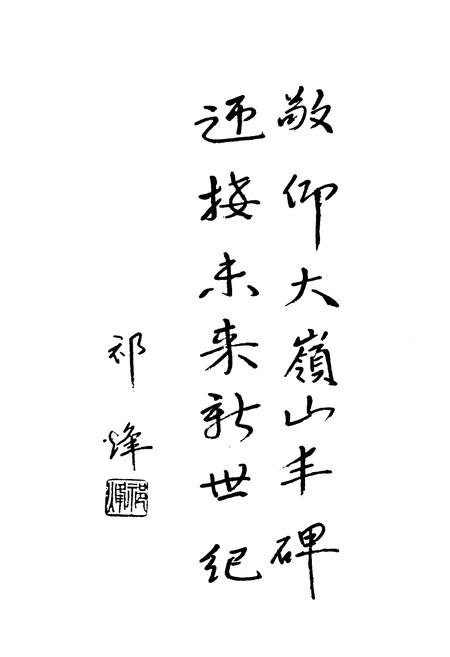 敬仰大嶺山丰碑
迎接未来新世纪
祁烽